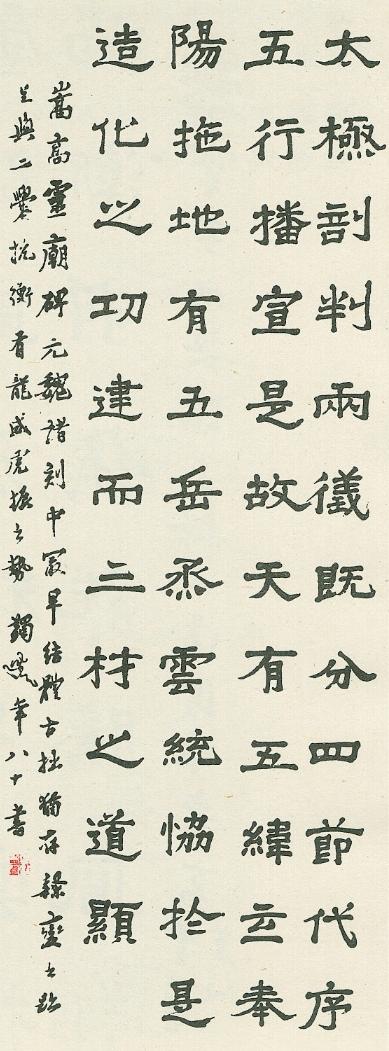 太極剖判兩儀既分四節代序
五行播宣是故天有五緯主奉
陽施地有五岳烝雲統協於是
造化之功建而三材之道顯
嵩高靈廟碑元魏諸刻中冣早結體古拙猶存隸變之跡
足與二爨抗衡有龍威虎振之勢 蠲叟年八十書